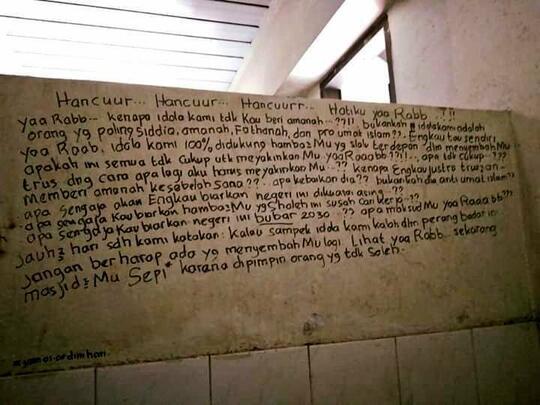 Hancuur... Hancuur... Hancuurr... Hatiku yaa Rabb...!!!
yaa Rabb... kenapa idola kami tdk Kau beri amanah...??!! bukankah idola kami adalah
orang yg paling Siddiq, amanah, Fathanah, dan pro umat islam??. Engkau tau sendiri
yaa Raab, Idola kami 100% didukung hamba2 Mu yg slalu terdepan dlm menyembah Mu...
apakah ini semua tdk cukup utk meyakinkan Mu yaa Raaabb??!!.. apa tdk cukup...???
trus dng cara apa lagi aku harus meyakinkan Mu..?? kenapa Engkau justru trus2an
Memberi amanah kesebelah sana??.. apa kebaikan dia?? bukankah dia anti umat islam??
apa Sengaja akan Engkau biarkan negeri ini dikuasai asing..??
apa sengaja Kau biarkan hamba2 Mu yg Sholeh ini susah cari kerja..??
apa sengaja Kau biarkan negeri ini bubar 2030..?? apa maksud Mu yaa Raaabb???
jauh2 hari sdh kami katakan: Kalau sampek idola kami kalah dlm perang badar ini
jangan berharap ada yg menyembah Mu lagi. Lihat yaa Rabb.. sekarang
masjid2 Mu Sepi" karana dipimpin orang yg tdk Soleh.